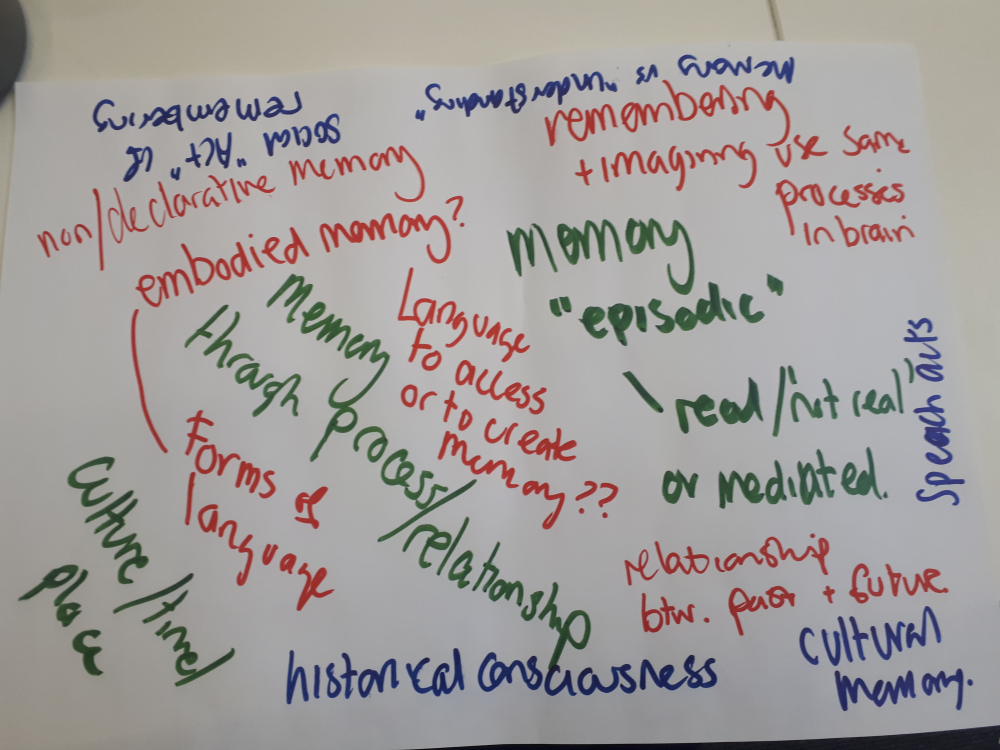 social "Act" of
remembering
Meaning vs "understanding"
non/declarative memory
remembering
+ imagining use same
processes
in brain
embodied memory?
Memory
"episodic"
real/"not real"
or mediated.
Speech acts
Memory
through process/relationship
Language
to access
or to create
memory??
forms of
language
culture/time/
place
relationship
btw. past + future.
historical consciousness
cultural
memory.